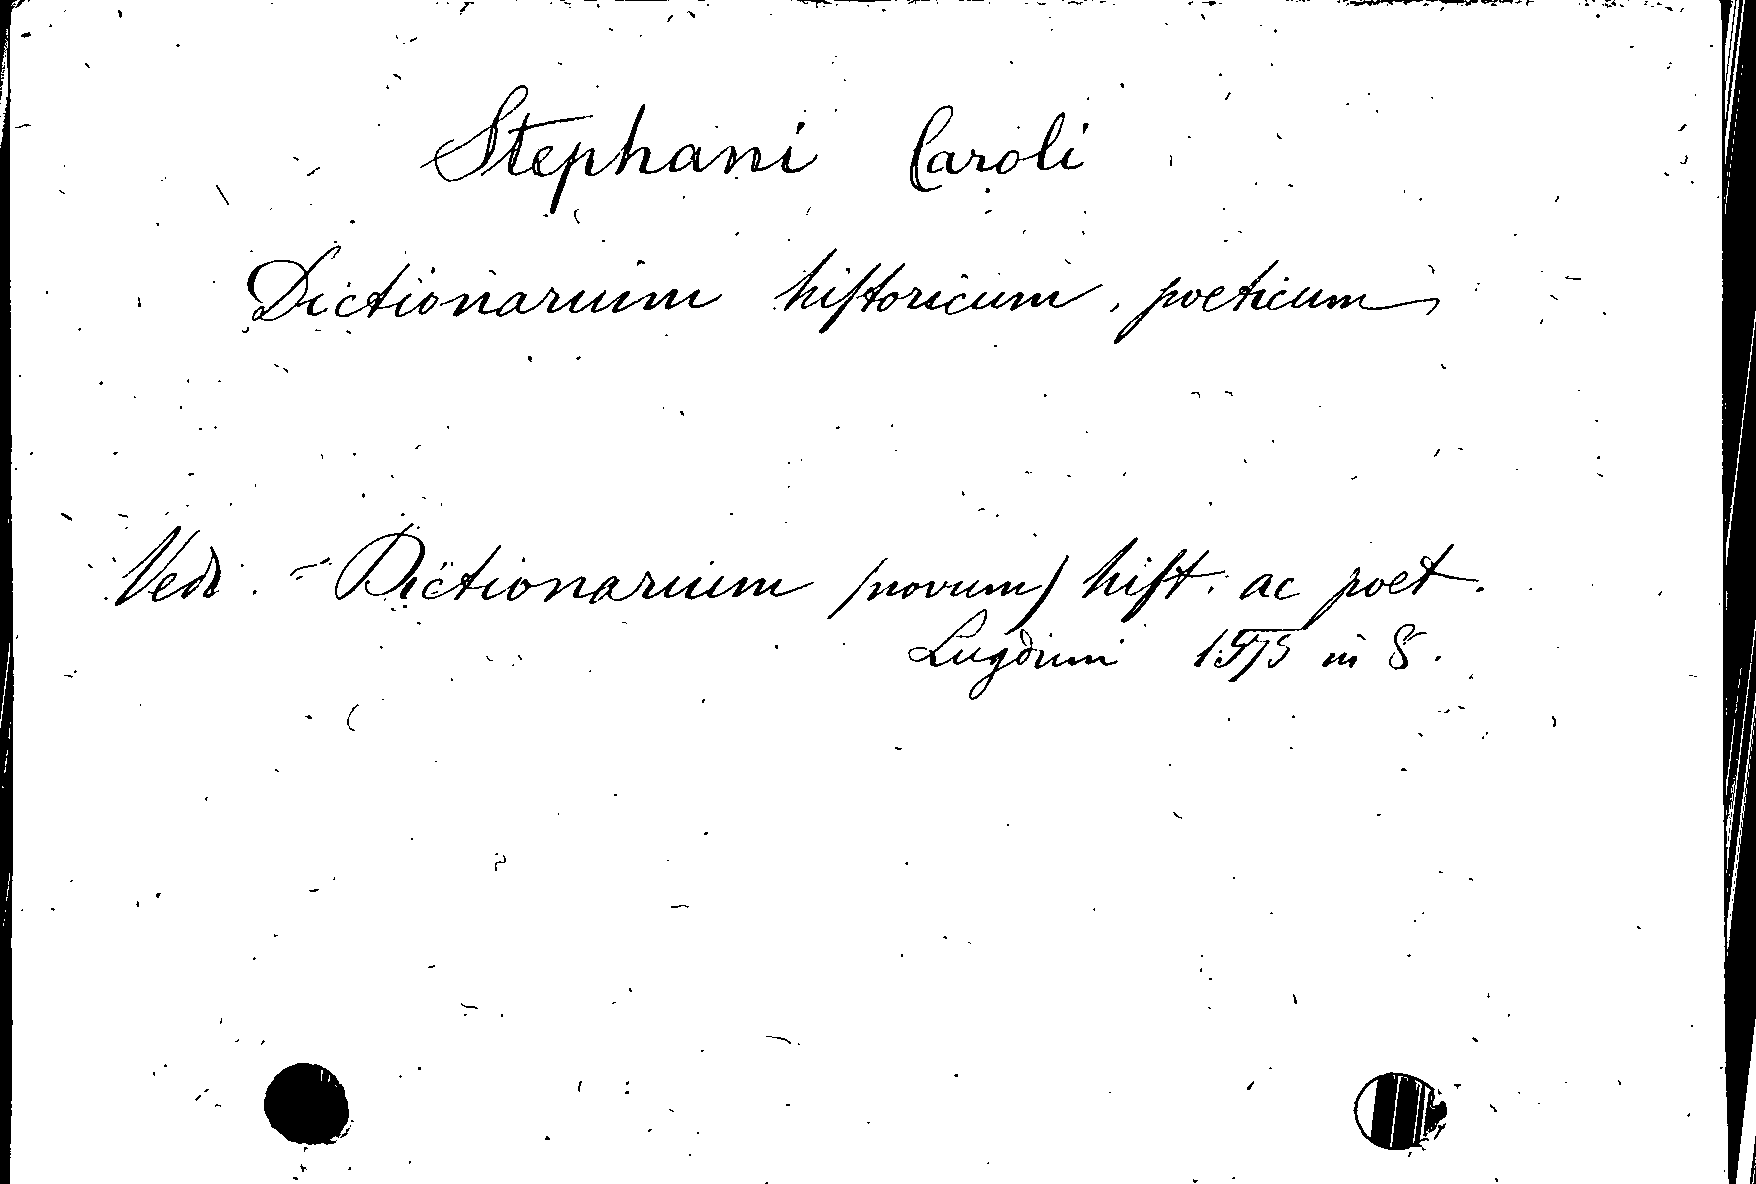 Stephani Caroli
Dictionarium hiſtoricum, poeticum
Vedi = Dictionarium (novum) hiſt. ac poet.
Lugduni 1575 in 8.